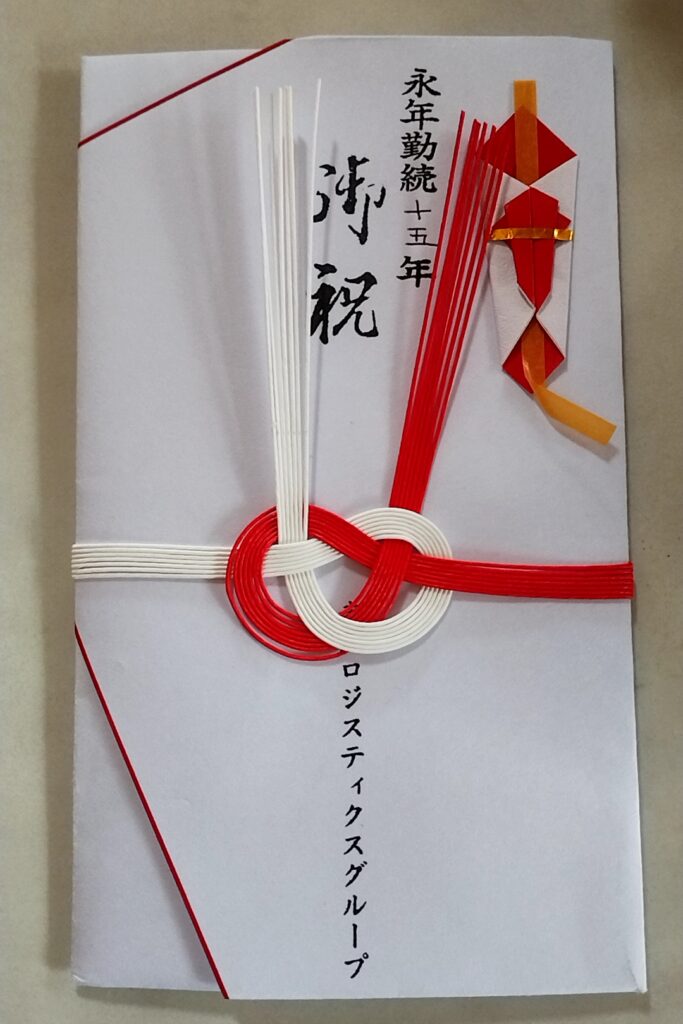 永年勤続十五年
御祝
ロジスティクスグループ